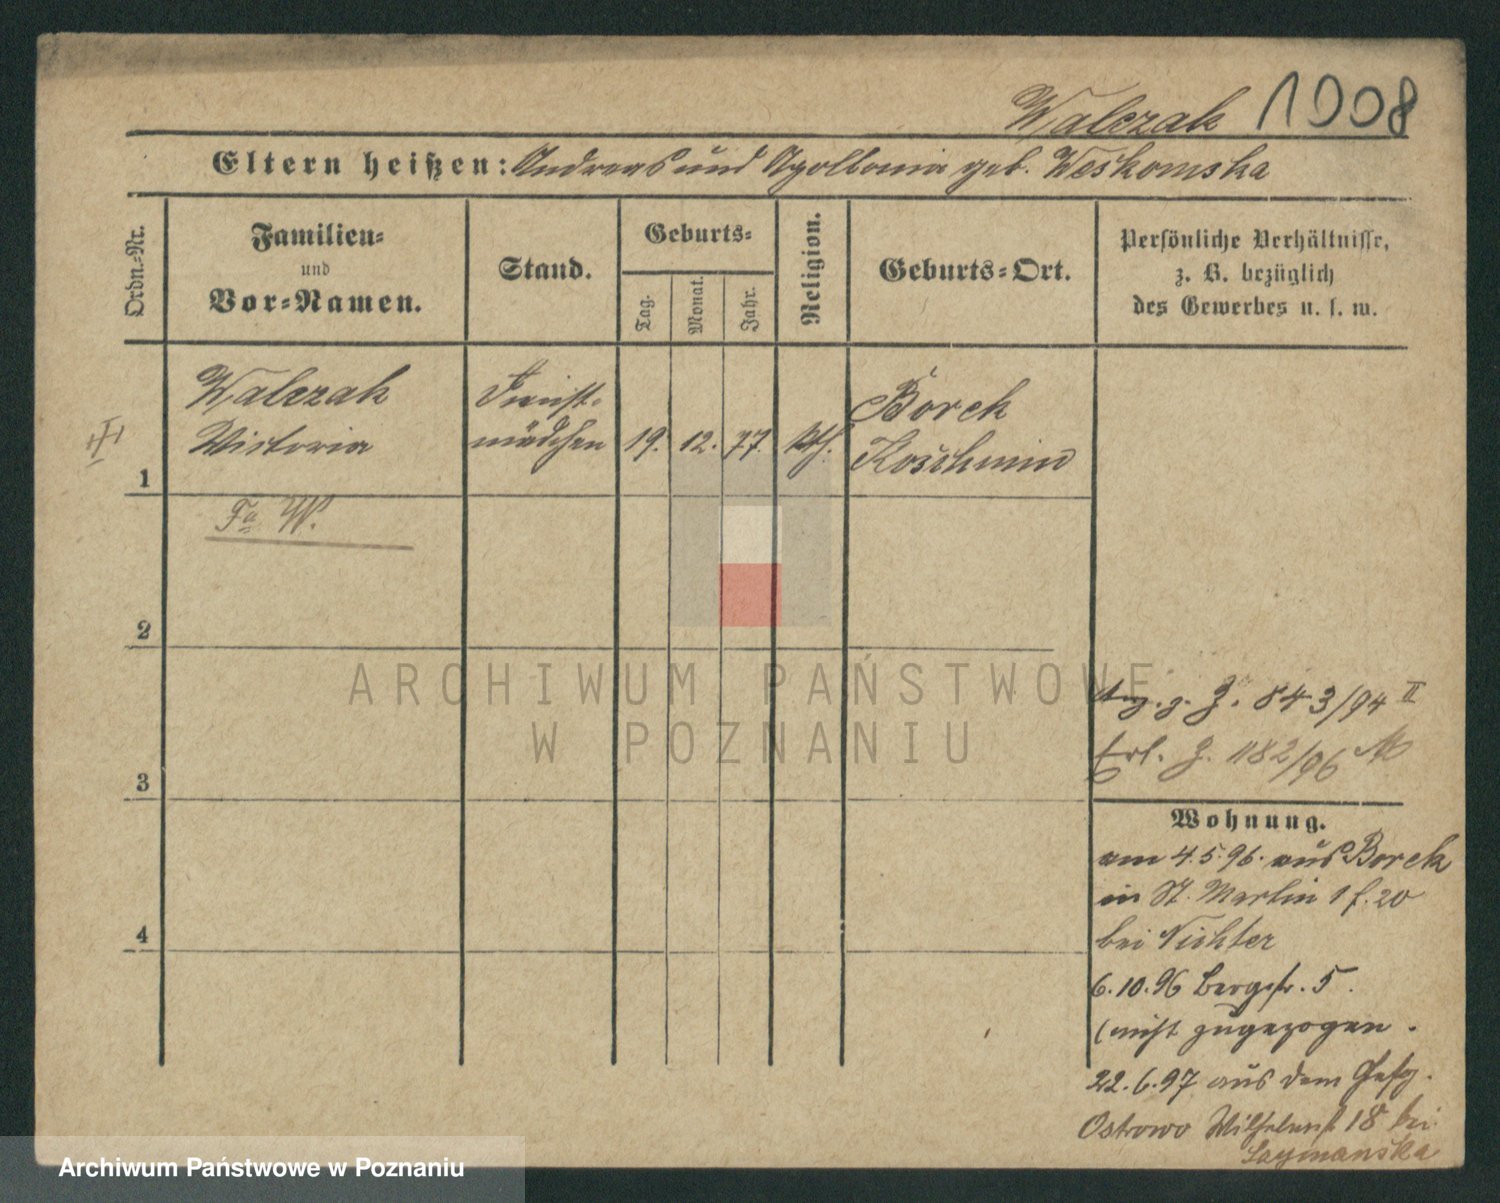 Walczak 1908
Eltern heißen: Andreas und Apollonia geb. Weskomska
Ordn.-Nr.
Familien-
und
Vor-Namen.
Stand.
Geburts-
Tag.
Monat.
Jahr.
Religion.
Geburts-Ort.
Persönliche Verhältnisse,
z. B. bezüglich
des Gewerbes u. s. w.
1
Walczak
Victoria
Dienst-
mädchen
19.
12.
77.
kth.
Borek
Koschmin
Fa W.
2
3
4
Ang. z. J. 843/94 II
Erl. J. 1182/96
Wohnung.
am 4.5.96. aus Borek
in St. Martin 1 f. 20
bei
6.10.96 Bergstr. 5.
(nicht zugezogen.
22.6.97 aus dem Gefg.
Ostrowo Wilhelmst 18 bei
ARCHIWUM PAŃSTWOWE
W POZNANIU
Archiwum Państwowe w Poznaniu